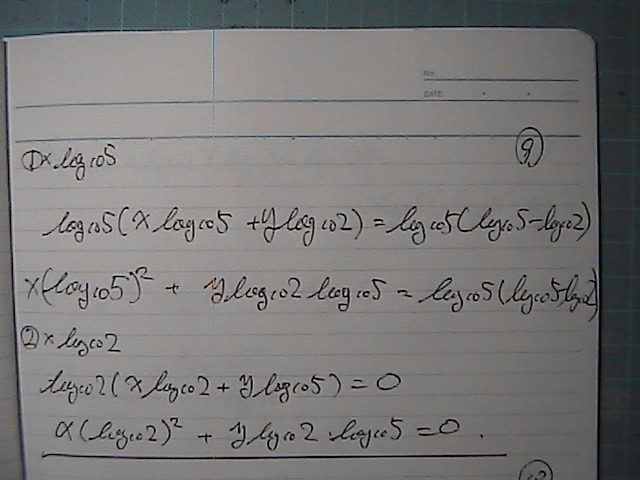 No.
DATE
⑨
①×log₁₀5
log₁₀5(x log₁₀5 + y log₁₀2) = log₁₀5(log₁₀5-log₁₀2)
x(log₁₀5)² + y log₁₀2 log₁₀5 = log₁₀5(log₁₀5-log₁₀2)
②×log₁₀2
log₁₀2(x log₁₀2 + y log₁₀5) = 0
x(log₁₀2)² + y log₁₀2 · log₁₀5 = 0.